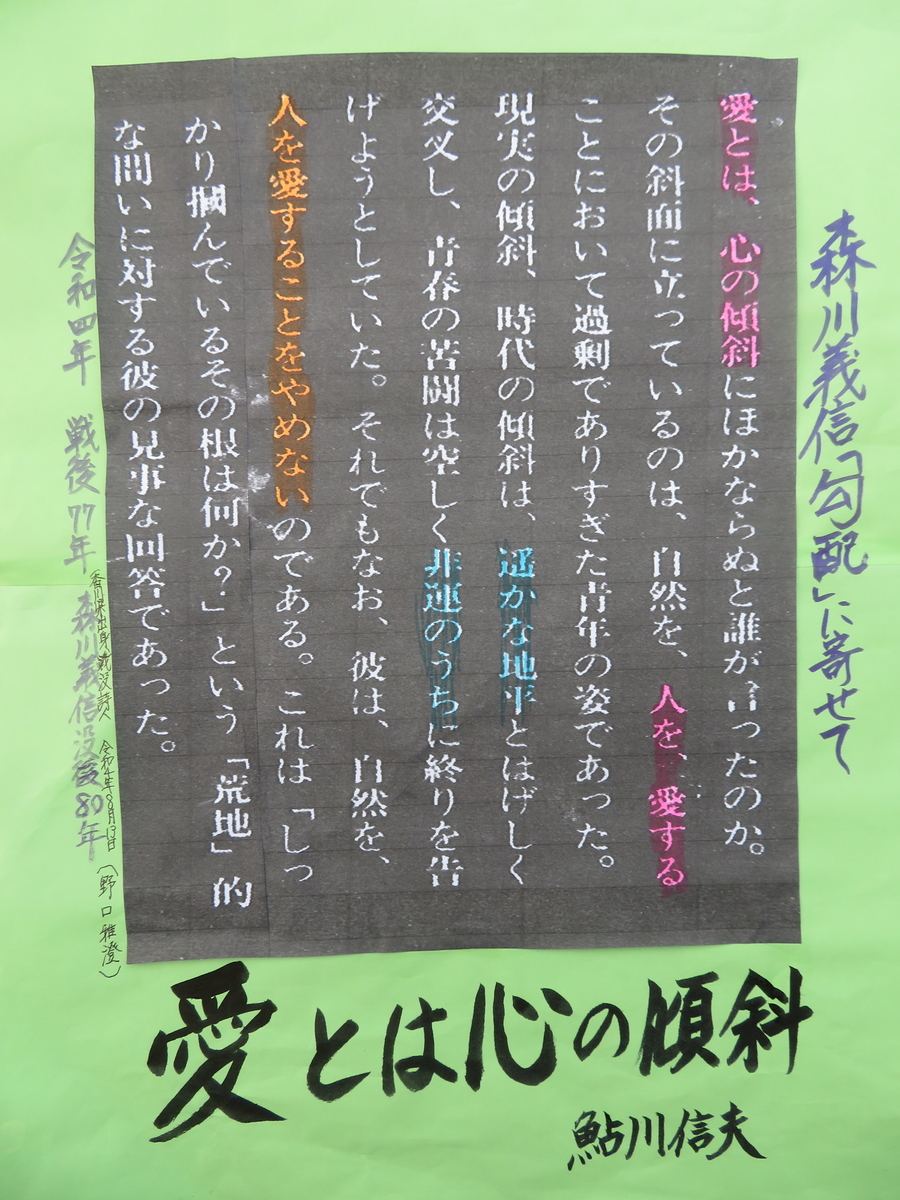 森川義信「勾配」に寄せて
愛とは、心の傾斜にほかならぬと誰が言ったのか。
その斜面に立っているのは、自然を、人を、愛する
ことにおいて過剰でありすぎた青年の姿であった。
現実の傾斜、時代の傾斜は、遥かな地平とはげしく
交叉し、青春の苦闘は空しく非運のうちに終りを告
げようとしていた。それでもなお、彼は、自然を、
人を愛することをやめないのである。これは「しっ
かり摑んでいるその根は何か?」という「荒地」的
な問いに対する彼の見事な回答であった。
香川県出身戦没詩人 令和4年8月13日(野口雅澄)
令和四年 戦後77年 森川義信没後80年
愛とは心の傾斜
鮎川信夫